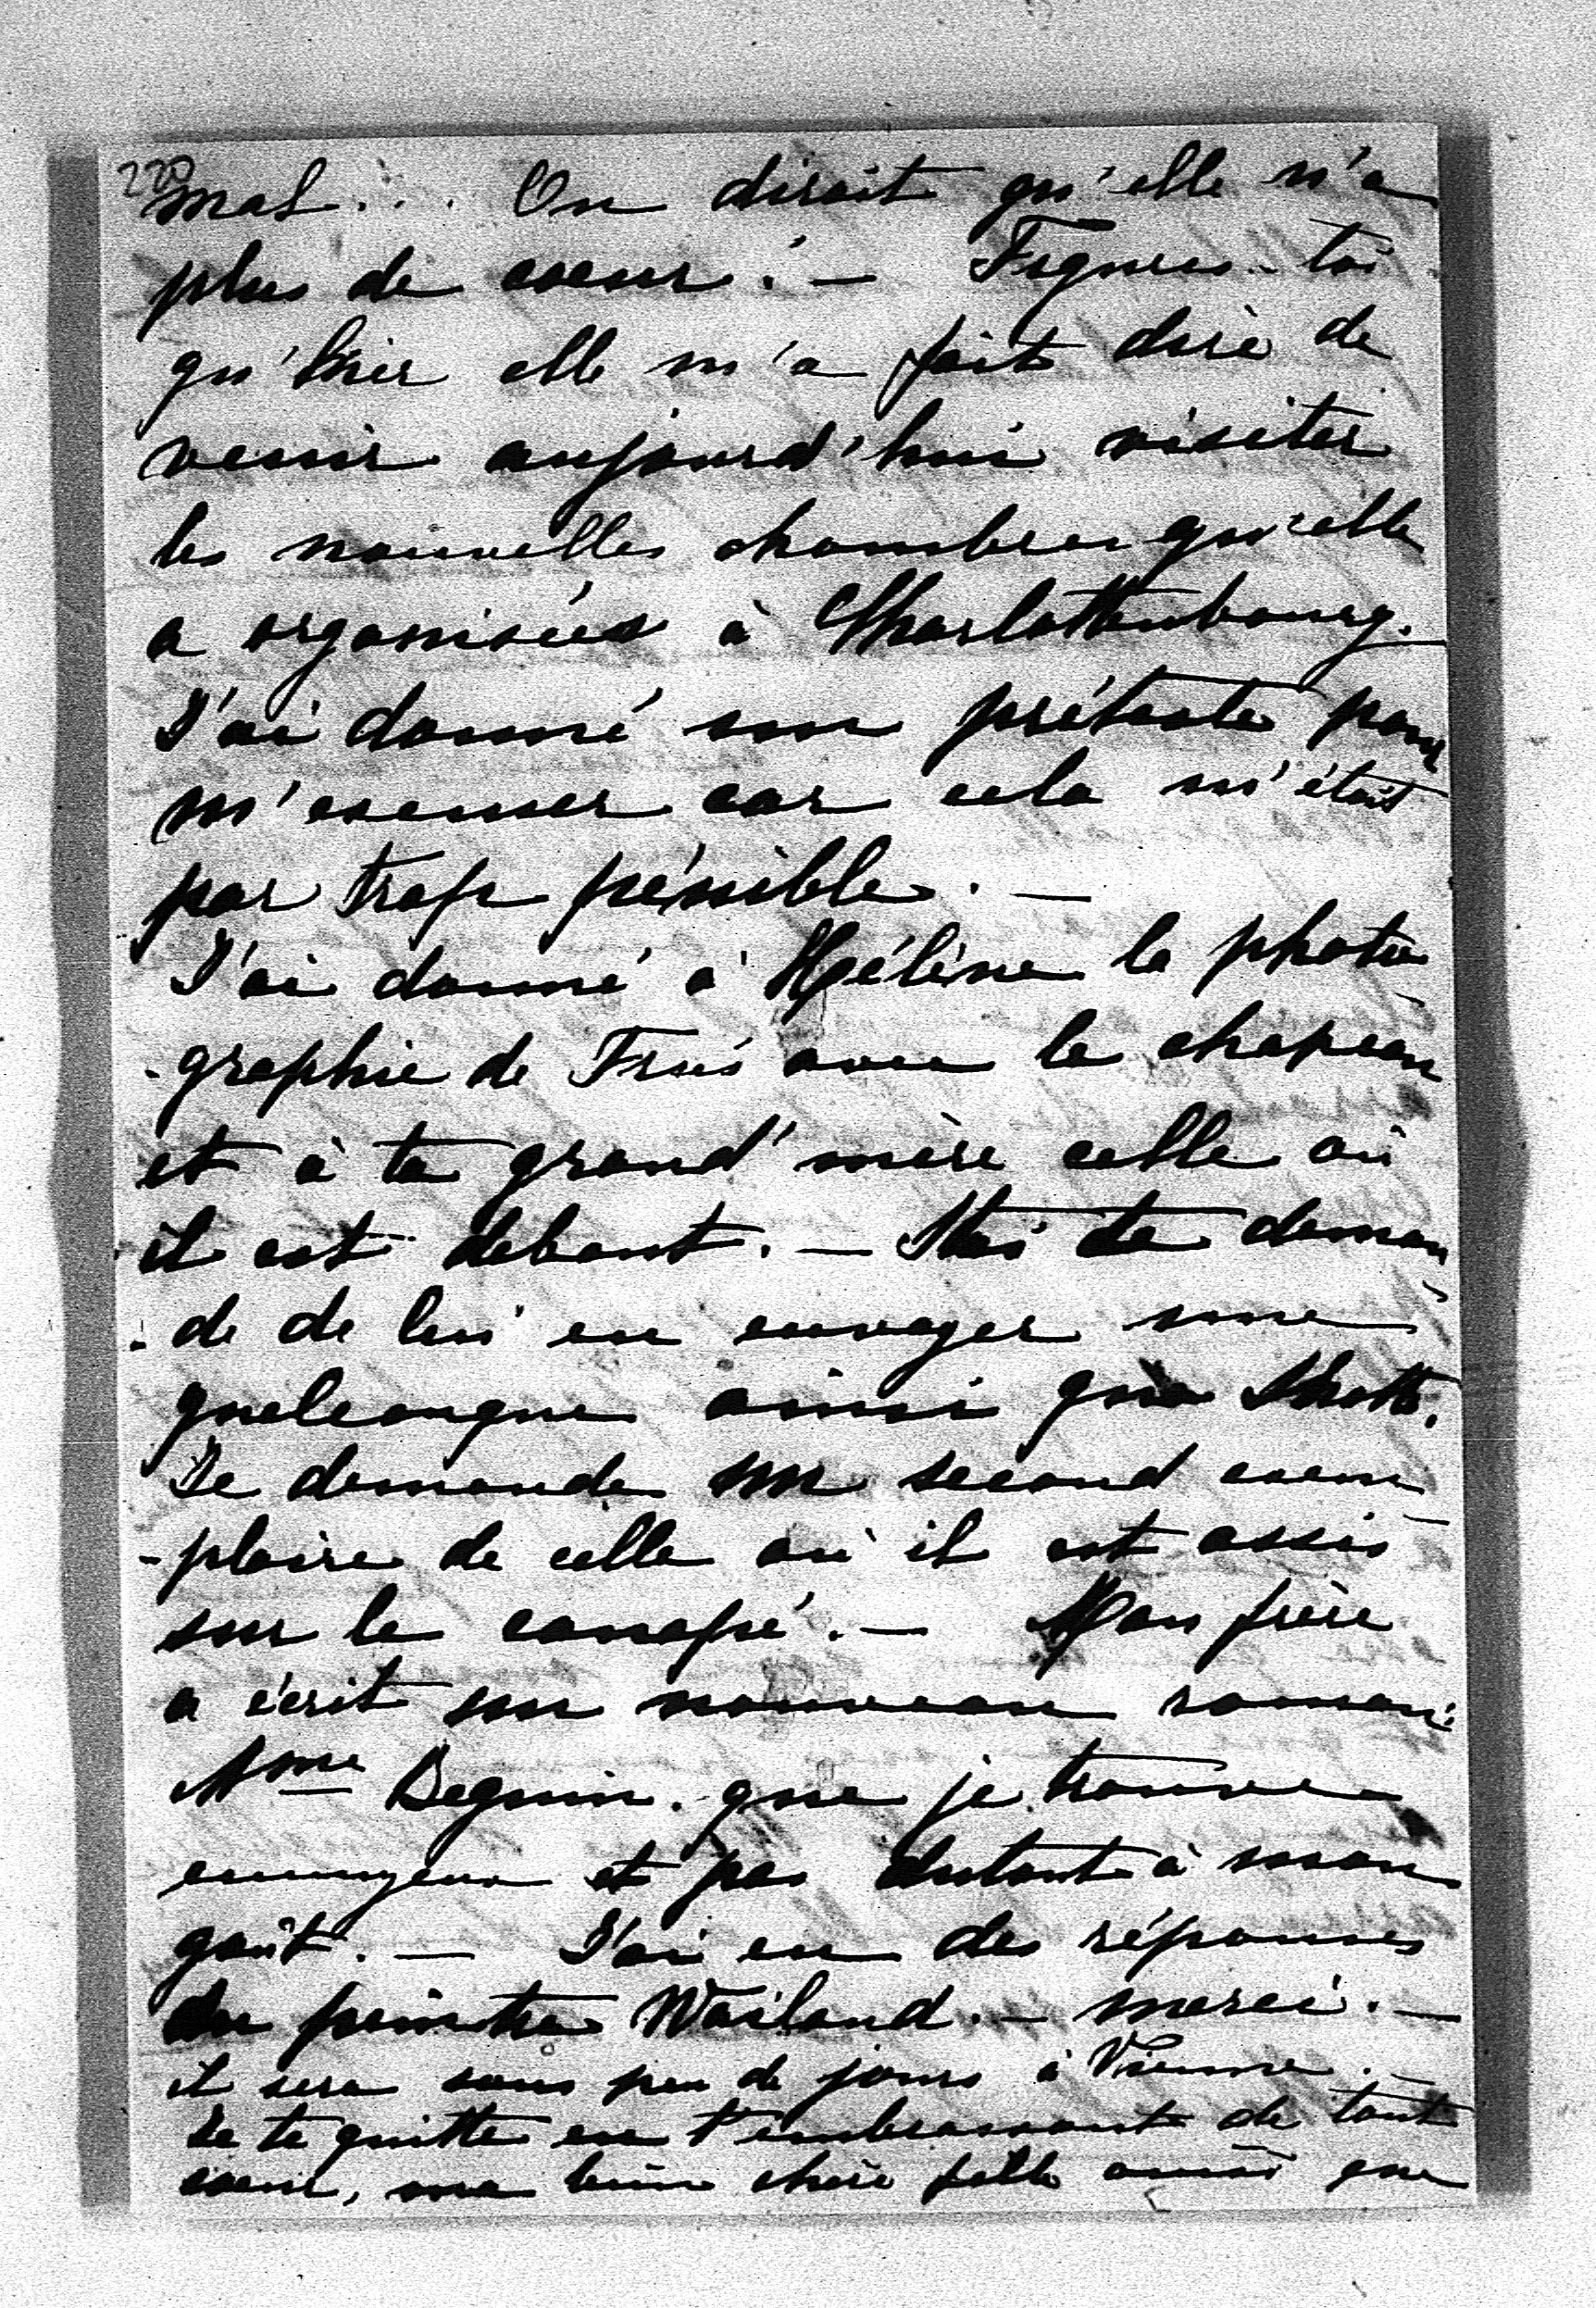 220
mal... On dirait qu'elle n'a
plus de coeur. — Figures-toi
qu'hier elle m'a fait dire de
venir aujourd'hui visiter
les nouvelles chambres qu'elle
a organisées à Charlottenbourg.
J'ai donné un prétexte pour
m'excuser car cela m'était
par trop pénible. —
J'ai donné à Hélène la photo
-graphie de avec le chapeau
et à ta grand'mère celle où
il est debout. — te deman
-de de lui en envoyer une
quelconque ainsi que
Je demande un second exem
-plaire de celle où il est assis
sur le canapé. — Mon frère
a écrit un nouveau roman:
Mme Beguin. que je trouve
ennuyeux et pas dutout à mon
goût. — J'ai eu des réponses
du peintre . — merci. —
il sera sous peu de jours à Vienne. —
Je te quitte en t'embrassant de tout
coeur, ma bien chère fille ainsi que